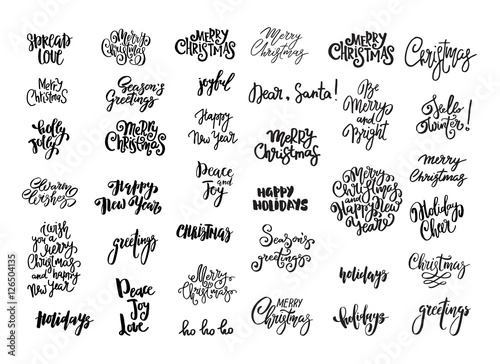 SPREAD
LOVE
Merry
Christmas
holly
jolly
Warm
Wishes
i wish
you a
Merry
Christmas
and happy
New Year
Holidays
Merry
Christmas
Season's
Greetings
MERRY
CHRISTMAS
Happy
New Year
greetings
Peace
Joy
Love
MERRY
CHRISTMAS
joyful
Happy
New Year
Peace
and
Joy
CHRISTMAS
Merry
Christmas
ho ho ho
Merry
Christmas
Dear, Santa!
Merry
Christmas
HAPPY
HOLIDAYS
Season's
greetings
MERRY
Christmas
MERRY
CHRISTMAS
Be
Merry
and
Bright
Merry
Christmas
and
Happy New
Year
holidays
holidays
Christmas
Hello
winter!
merry
Christmas
Holiday
Cheer
Christmas
greetings
126504135
Adobe Stock